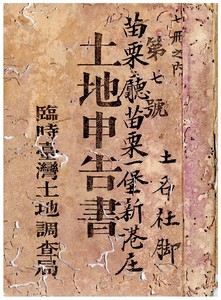 七冊之內
第七號
土名社脚
苗栗廳苗栗堡新港庄
土地申告書
臨時臺灣土地調查局